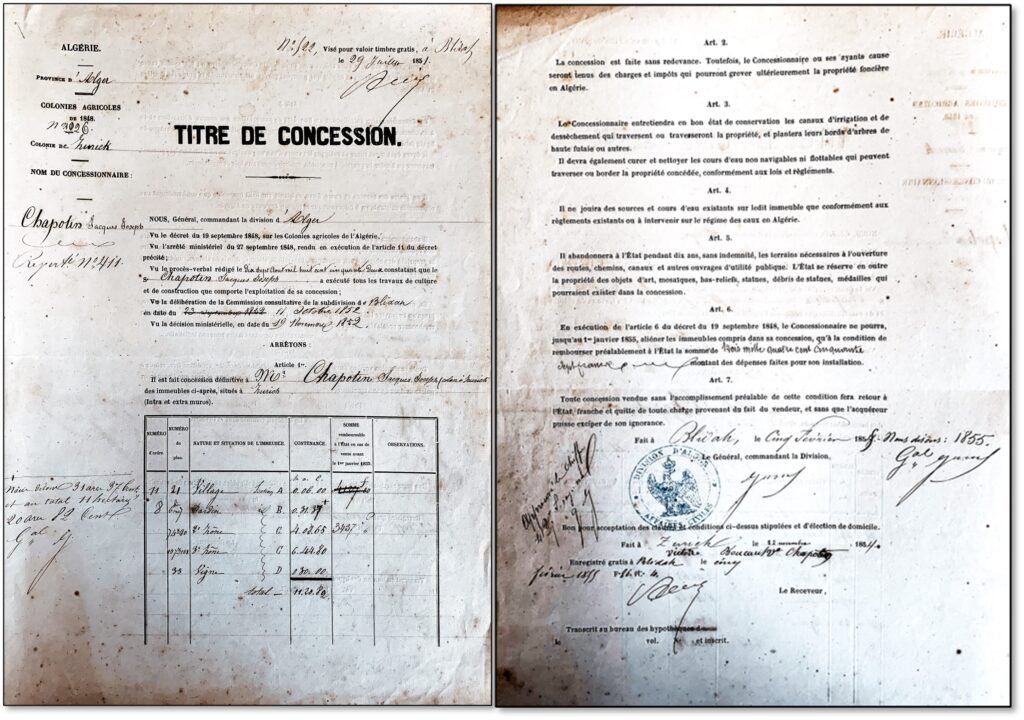 ALGÉRIE.
PROVINCE D'Alger
COLONIES AGRICOLES
DE 1848.
COLONIE DE Zurick
NOM DU CONCESSIONNAIRE :
Chapotin Jacques Joseph
Répert. N° 411
N° 122 Visé pour valoir timbre gratis, à Blidah
le 29 Juillet 1851.
TITRE DE CONCESSION.
NOUS, Général, commandant la division d'Alger
Vu le décret du 19 septembre 1848, sur les Colonies agricoles de l'Algérie.
Vu l'arrêté ministériel du 27 septembre 1848, rendu en exécution de l'article 11 du décret
précité;
Vu le procès-verbal rédigé le dix sept Aout mil huit cent cinquante deux constatant que le
Sr Chapotin Jacques Joseph a exécuté tous les travaux de culture
et de construction que comporte l'exploitation de sa concession;
Vu la délibération de la Commission consultative de la subdivision de Blidah
en date du 23 septembre 1852 11 Octobre 1852
Vu la décision ministérielle, en date du 19 Novembre 1852
ARRÊTONS :
Article 1er.
Il est fait concession définitive à Mr. Chapotin Jacques Joseph, colon à Zurich
des immeubles ci-après, situés à Zurich
(Intra et extra muros).
NUMÉRO d'ordre. NUMÉRO du plan. NATURE ET SITUATION DE L'IMMEUBLE. CONTENANCE. SOMME remboursable à l'État en cas de vente avant le 1er janvier 1855. OBSERVATIONS.
h. a. c.
11 21 Village A 0.06.00
8 Jardin B 0.31.37
2e Zône C 4.08.65 3457
3e Zône C 6.44.80
33 Vigne D 0.30.00
total 11.20.82
Nous disons 31 ares 37 Cent
et au total 11 hectares
20 ares 82 Cent
Gal
Art. 2.
La concession est faite sans redevance. Toutefois, le Concessionnaire ou ses ayants cause
seront tenus des charges et impôts qui pourront grever ultérieurement la propriété foncière
en Algérie.
Art. 3.
Le Concessionnaire entretiendra en bon état de conservation les canaux d'irrigation et de
dessèchement qui traversent ou traverseront la propriété, et plantera leurs bords d'arbres de
haute futaie ou autres.
Il devra également curer et nettoyer les cours d'eau non navigables ni flottables qui peuvent
traverser ou border la propriété concédée, conformément aux lois et règlements.
Art. 4.
Il ne jouira des sources et cours d'eau existants sur ledit immeuble que conformément aux
règlements existants ou à intervenir sur le régime des eaux en Algérie.
Art. 5.
Il abandonnera à l'État pendant dix ans, sans indemnité, les terrains nécessaires à l'ouverture
des routes, chemins, canaux et autres ouvrages d'utilité publique. L'État se réserve en outre
la propriété des objets d'art, mosaïques, bas-reliefs, statues, débris de statues, médailles qui
pourraient exister dans la concession.
Art. 6.
En exécution de l'article 6 du décret du 19 septembre 1848, le Concessionnaire ne pourra,
jusqu'au 1er janvier 1855, aliéner les immeubles compris dans sa concession, qu'à la condition de
rembourser préalablement à l'État la somme de trois mille quatre cent cinquante
sept francs montant des dépenses faites pour son installation.
Art. 7.
Toute concession vendue sans l'accomplissement préalable de cette condition fera retour à
l'État, franche et quitte de toute charge provenant du fait du vendeur, et sans que l'acquéreur
puisse exciper de son ignorance.
Fait à Blidah, le cinq Février 1855. Nous disons : 1855.
Le Général, commandant la Division,
DIVISION D'ALGER
AFFAIRES CIVILES
Bon pour acceptation des clauses et conditions ci-dessus stipulées et d'élection de domicile.
Fait à Zurich le 12 novembre 1854.
Victoire Chapotin
Enregistré gratis à Blidah le cinq
février 1855
Le Receveur,
Transcrit au bureau des hypothèques
le vol. N° et inscrit.